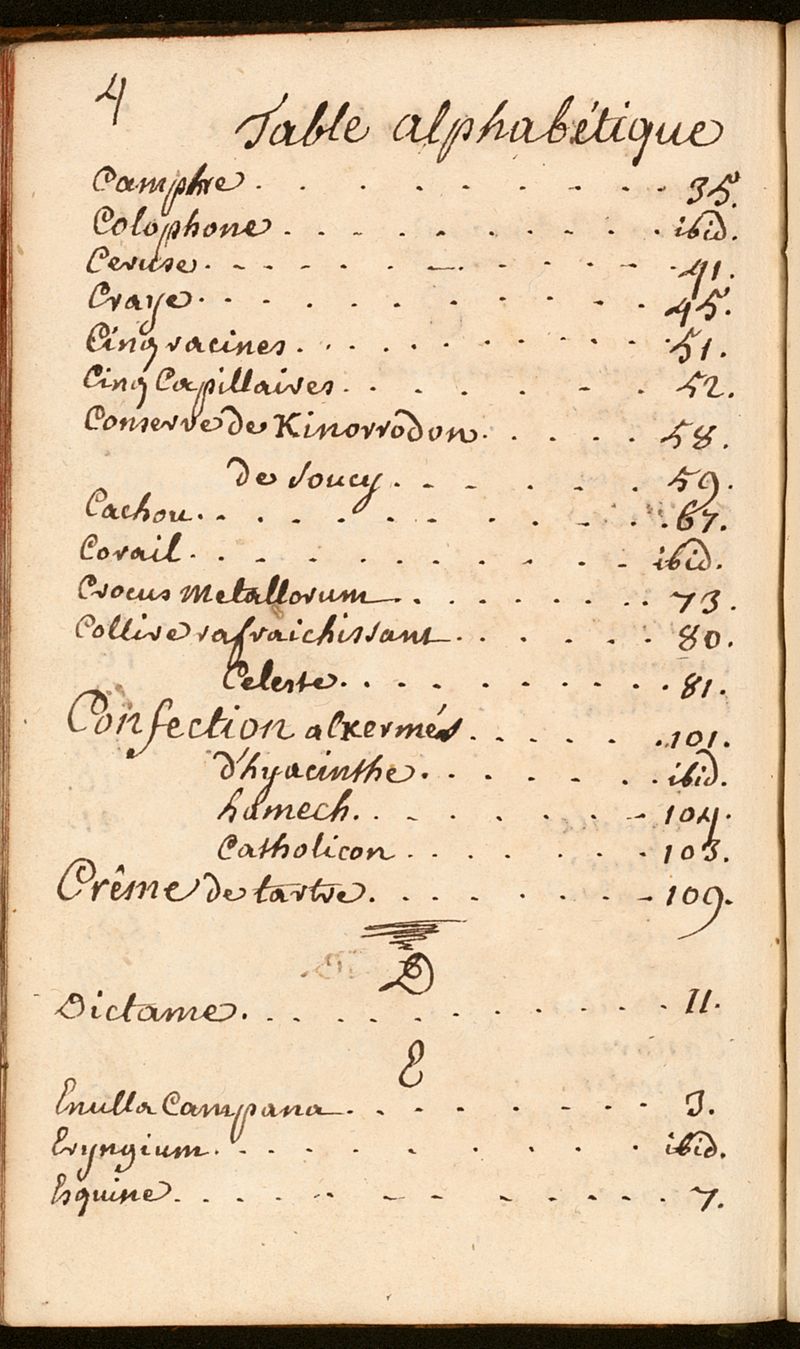 4
Table alphabétique
Camphre . . . . . . . . . 35.
Colophone . . . . . . . . . ibid.
Ceruse . . . . . . . . . 41.
Craye . . . . . . . . . 45.
Cinq racines . . . . . . . . . 51.
Cinq Capillaires . . . . . . . 52.
Conserve de Kinorrodon . . . . . 58.
de Soucy . . . . . . 59.
Cachou . . . . . . . . . 67.
Corail . . . . . . . . . ibid.
Crocus Metallorum . . . . . . . 73.
Collire rafraichissant . . . . . . 80.
Celeste . . . . . . . . . 81.
Confection alkermés . . . . . . 101.
d'hyacinthe . . . . . . ibid.
hamech . . . . . . . 104.
Catholicon . . . . . . 103.
Crême de tartre . . . . . . . 109.
D
Dictame . . . . . . . . . 11.
E
Enulla Campana . . . . . . . . 3.
Eryngium . . . . . . . . . ibid.
Esquine . . . . . . . . . 7.